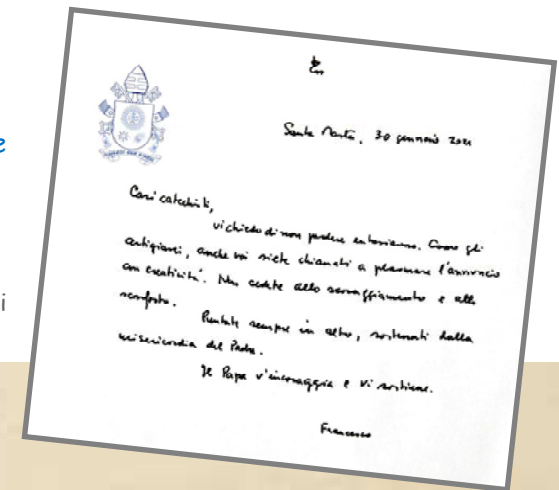 e
i
Santa Marta, 30 gennaio 2021
Cari catechisti,
vi chiedo di non perdere entusiasmo. Come gli
artigiani, anche voi siete chiamati a plasmare l'annuncio
con creatività. Non cedete allo scoraggiamento e allo
sconforto.
Puntate sempre in alto, sostenuti dalla
misericordia del Padre.
Il Papa v'incoraggia e vi sostiene.
Francesco